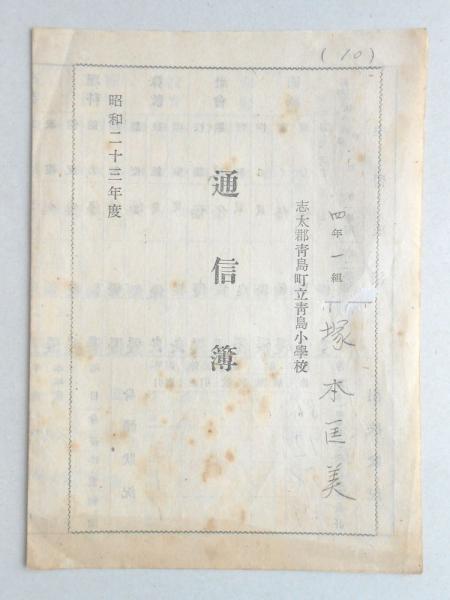 (10)
四年一組
塚本匡美
志太郡靑島町立靑島小學校
通信簿
昭和二十三年度